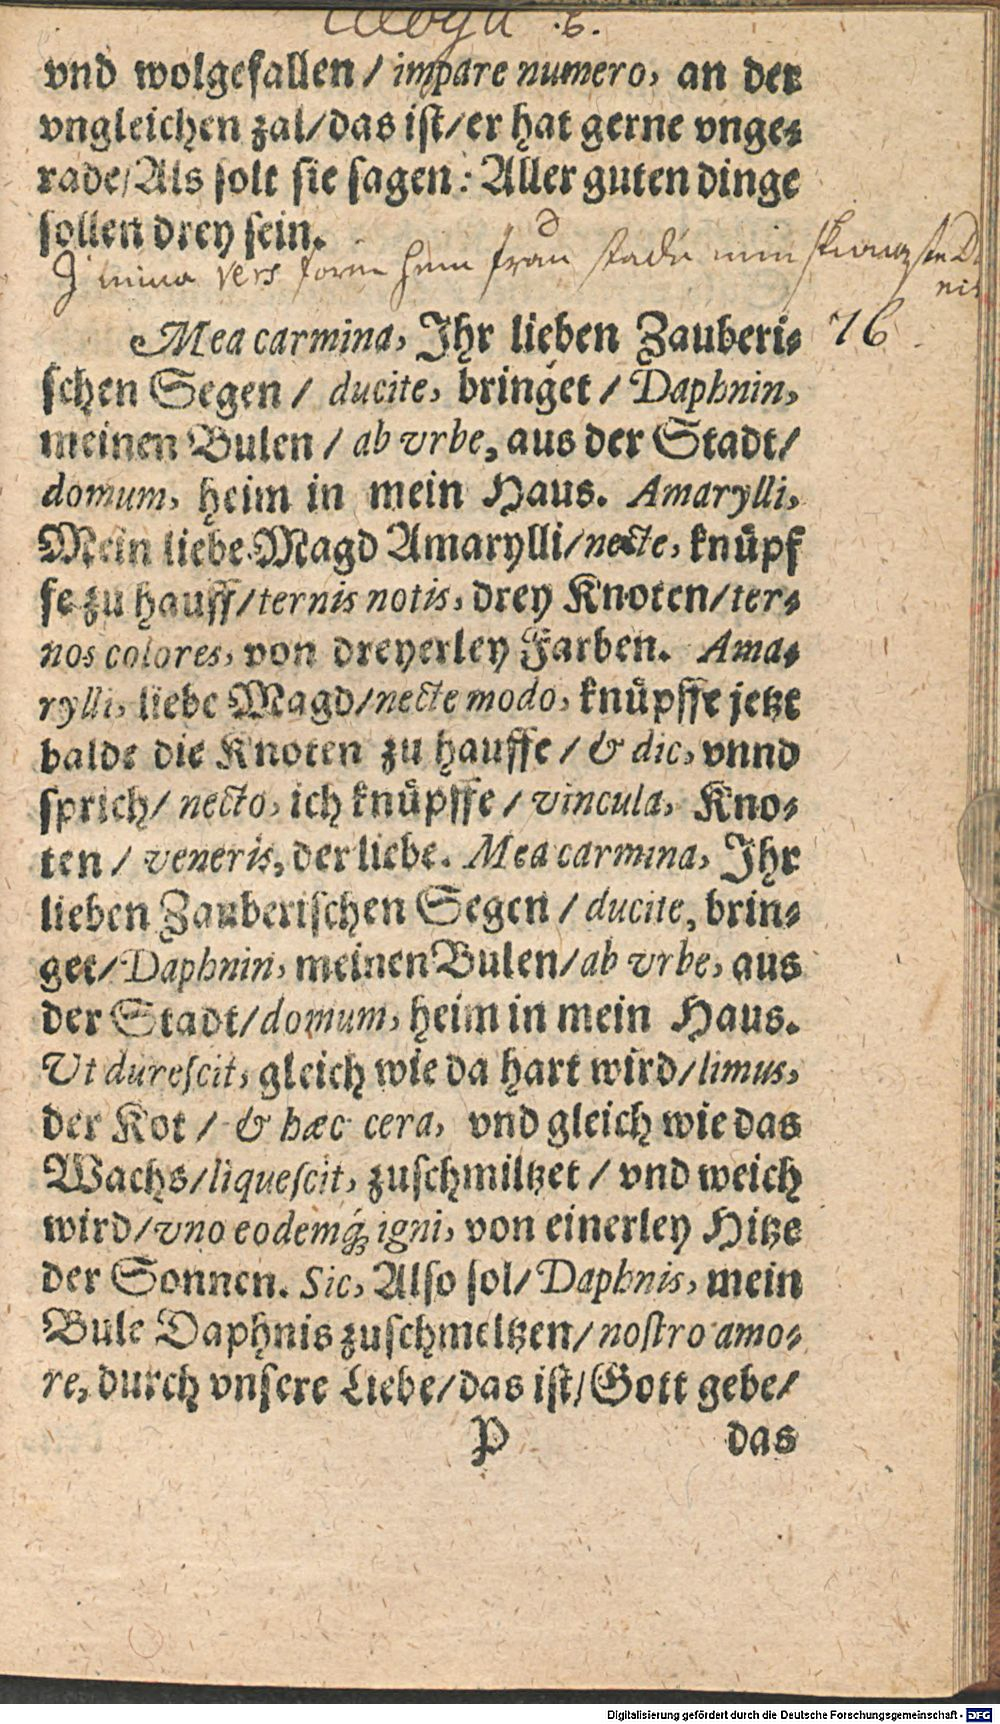 vnd wolgefallen / impare numero, an der
vngleichen zal/das ist/er hat gerne vnge-
rade/Als solt sie sagen: Aller guten dinge
sollen drey sein.
vers hem frau
76
Mea carmina, Ihr lieben Zauberi-
schen Segen / ducite, bringet / Daphnin,
meinen Bulen / ab vrbe, aus der Stadt/
domum, heim in mein Haus. Amarylli,
Mein liebe Magd Amarylli/necte, knüpf
fe zu hauff/ternis notis, drey Knoten/ter-
nos colores, von dreyerley Farben. Ama-
rylli, liebe Magd/necte modo, knüpffe jetzt
balde die Knoten zu hauffe / & dic, vnnd
sprich/ necto, ich knüpffe / vincula, Kno-
ten / veneris, der liebe. Mea carmina, Ihr
lieben Zauberischen Segen / ducite, brin-
get/Daphnin, meinen Bulen/ab vrbe, aus
der Stadt/domum, heim in mein Haus.
Ut durescit, gleich wie da hart wird/limus,
der Kot / & hæc cera, vnd gleich wie das
Wachs/liquescit, zuschmiltzet / vnd weich
wird/vno eodemq́; igni, von einerley Hitze
der Sonnen. Sic, Also sol/Daphnis, mein
Bule Daphnis zuschmeltzen/nostro amo-
re, durch vnsere Liebe/das ist/Gott gebe/
P das
Digitalisierung gefördert durch die Deutsche Forschungsgemeinschaft - DFG